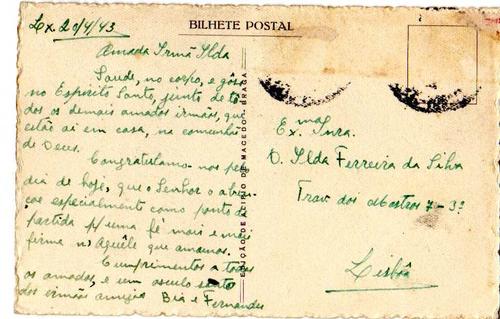 Lx. 20/4/43
BILHETE POSTAL
Amada Irmã Ilda
Saude, no corpo, e gôso
no Espirito Santo, junto de to-
dos os demais amados irmãos, que
estão ai em casa, na comunhão
de Deus.
Congratulamo-nos pelo
dia de hoje, que o Senhor o aben-
çoe especialmente como ponto de
partida p/ uma fé mais e mais
firme n'Aquêle que amamos.
Cumprimentos a todos
os amados, e um osculo santo
dos irmãos amigos Bia e Fernandes
EDIÇÃO DE ACIPIO DE MACEDO - BRAGA
Ex.ma Snra.
D. Ilda Ferreira da Silva
Trav. dos Mastros 7-3º
Lisbôa